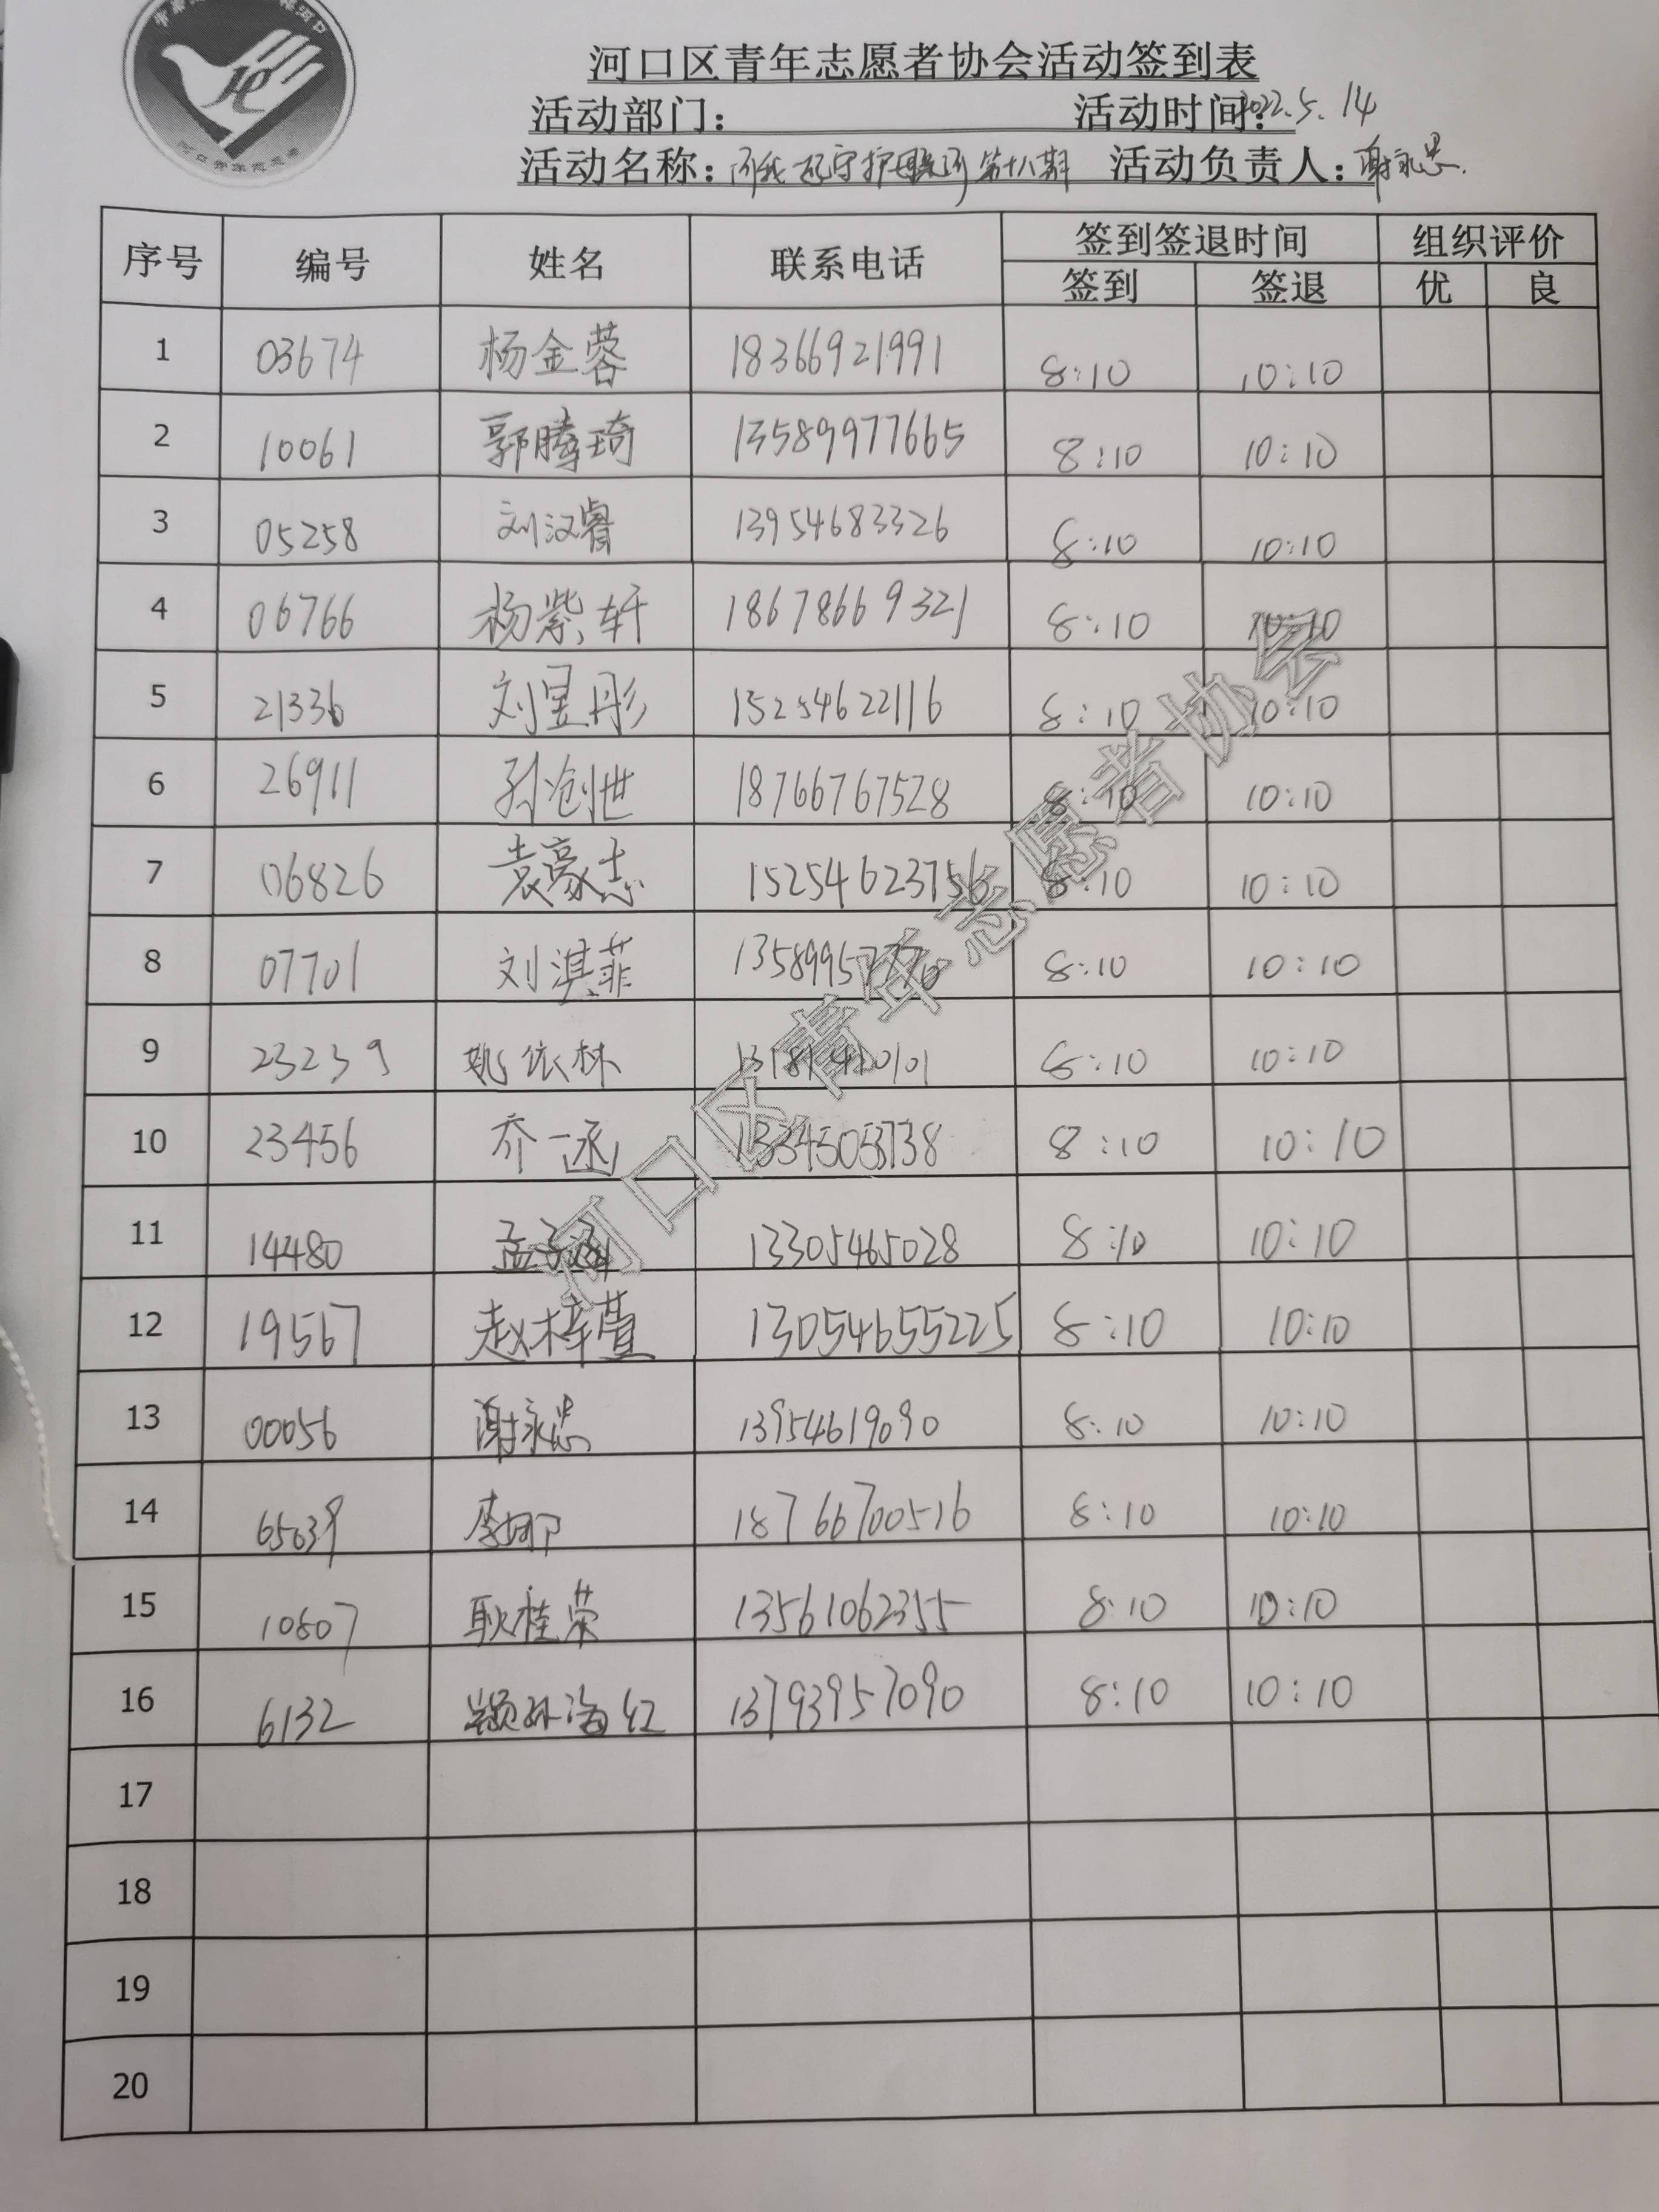 河口区青年志愿者协会活动签到表
活动部门： 活动时间：2022.5.14
活动名称： 守护母亲河第十八期 活动负责人：谢永忠
序号 编号 姓名 联系电话 签到签退时间 组织评价
签到 签退 优 良
1 03674 杨金蓉 18366921991 8:10 10:10
2 10061 郭腾琦 13589977665 8:10 10:10
3 05258 刘汉睿 13954683326 8:10 10:10
4 06766 杨紫轩 18678669321 8:10 10:10
5 21336 刘昱彤 15254622116 8:10 10:10
6 26911 孙创世 18766767528 8:10 10:10
7 06826 袁豪志 15254623756 8:10 10:10
8 07701 刘淇菲 13589957770 8:10 10:10
9 23239 姚依林 13181420101 8:10 10:10
10 23456 乔一函 13345053738 8:10 10:10
11 14480 孟子涵 13305465028 8:10 10:10
12 19567 赵梓萱 13054655225 8:10 10:10
13 00056 谢永忠 13954619090 8:10 10:10
14 65039 李娜 18766700516 8:10 10:10
15 10807 耿桂荣 13561062355 8:10 10:10
16 6132 颛孙海红 13793957090 8:10 10:10
17
18
19
20
河口区青年志愿者协会